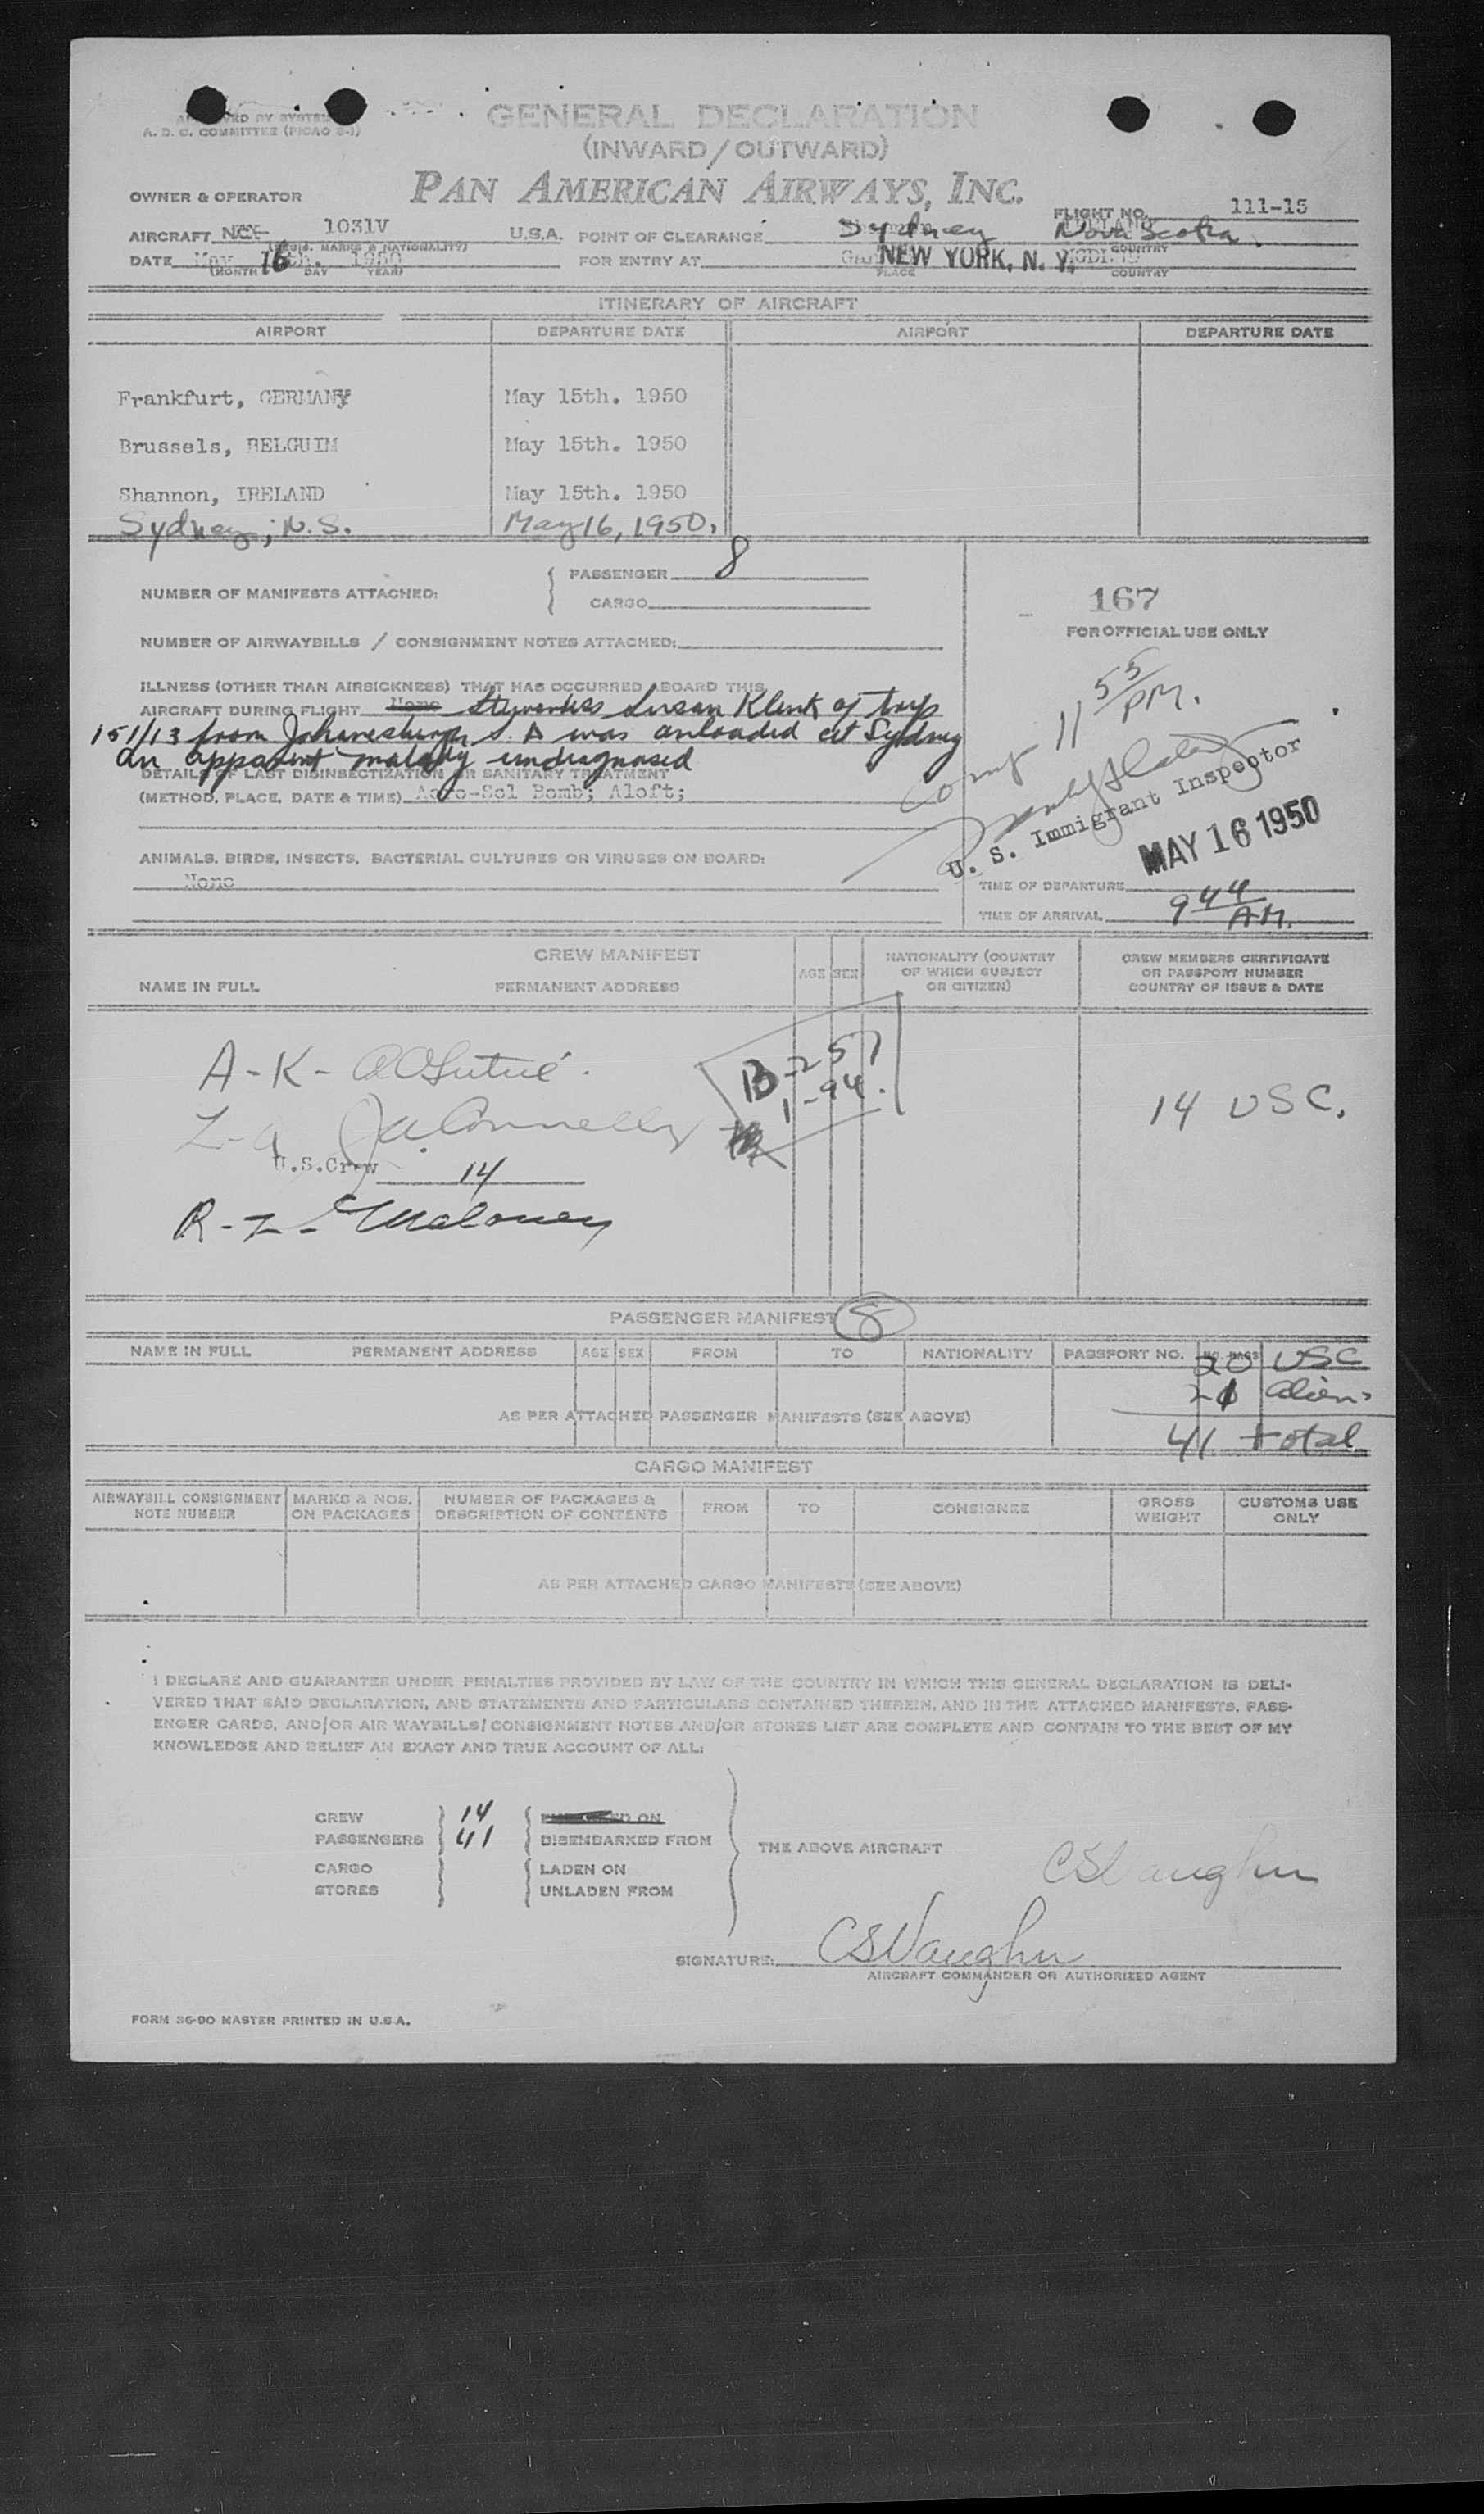 A. D. C. COMMITTEE (PICAO 2-1)
GENERAL DECLARATION
(INWARD/OUTWARD)
OWNER & OPERATOR PAN AMERICAN AIRWAYS, INC.
FLIGHT NO. 111-15
AIRCRAFT NC 1031V U.S.A. POINT OF CLEARANCE Sydney Nova Scotia
(REGIS. MARKS & NATIONALITY) COUNTRY
DATE May 16th. 1950 FOR ENTRY AT NEW YORK, N. Y.
(MONTH DAY YEAR) PLACE COUNTRY
ITINERARY OF AIRCRAFT
AIRPORT DEPARTURE DATE AIRPORT DEPARTURE DATE
Frankfurt, GERMANY May 15th. 1950
Brussels, BELGUIM May 15th. 1950
Shannon, IRELAND May 15th. 1950
Sydney, N.S. May 16, 1950.
PASSENGER 8
NUMBER OF MANIFESTS ATTACHED:
CARGO
167
FOR OFFICIAL USE ONLY
NUMBER OF AIRWAYBILLS / CONSIGNMENT NOTES ATTACHED:
ILLNESS (OTHER THAN AIRSICKNESS) THAT HAS OCCURRED ABOARD THIS
AIRCRAFT DURING FLIGHT None Stewardess Susan Klenk of trip
151/13 from Johannesburgh S. A was unloaded at Sydney
an apparent malady undiagnosed
11 55 PM.
DETAILS OF LAST DISINSECTIZATION OR SANITARY TREATMENT
(METHOD, PLACE, DATE & TIME) Aero-Sol Bomb; Aloft;
U. S. Immigrant Inspector
MAY 16 1950
ANIMALS, BIRDS, INSECTS, BACTERIAL CULTURES OR VIRUSES ON BOARD:
None
TIME OF DEPARTURE
TIME OF ARRIVAL 9 44 A.M.
CREW MANIFEST
NAME IN FULL PERMANENT ADDRESS AGE SEX NATIONALITY (COUNTRY OF WHICH SUBJECT OR CITIZEN) CREW MEMBERS CERTIFICATE OR PASSPORT NUMBER COUNTRY OF ISSUE & DATE
A-K-
B-257
1-94.
14 USC.
J.A. Connelly
U.S.Crew 14
R-I- Maloney
PASSENGER MANIFEST 8
NAME IN FULL PERMANENT ADDRESS AGE SEX FROM TO NATIONALITY PASSPORT NO.
20 USC
21 aliens
AS PER ATTACHED PASSENGER MANIFESTS (SEE ABOVE)
41 total
CARGO MANIFEST
AIRWAYBILL CONSIGNMENT NOTE NUMBER MARKS & NOS. ON PACKAGES NUMBER OF PACKAGES & DESCRIPTION OF CONTENTS FROM TO CONSIGNEE GROSS WEIGHT CUSTOMS USE ONLY
AS PER ATTACHED CARGO MANIFESTS (SEE ABOVE)
I DECLARE AND GUARANTEE UNDER PENALTIES PROVIDED BY LAW OF THE COUNTRY IN WHICH THIS GENERAL DECLARATION IS DELI-
VERED THAT SAID DECLARATION, AND STATEMENTS AND PARTICULARS CONTAINED THEREIN, AND IN THE ATTACHED MANIFESTS, PASS-
ENGER CARDS, AND/OR AIR WAYBILLS/CONSIGNMENT NOTES AND/OR STORES LIST ARE COMPLETE AND CONTAIN TO THE BEST OF MY
KNOWLEDGE AND BELIEF AN EXACT AND TRUE ACCOUNT OF ALL:
CREW 14
PASSENGERS 41 DISEMBARKED FROM
THE ABOVE AIRCRAFT
CARGO LADEN ON
STORES UNLADEN FROM
CSVaughn
SIGNATURE: CSVaughn
AIRCRAFT COMMANDER OR AUTHORIZED AGENT
FORM 36-90 MASTER PRINTED IN U.S.A.